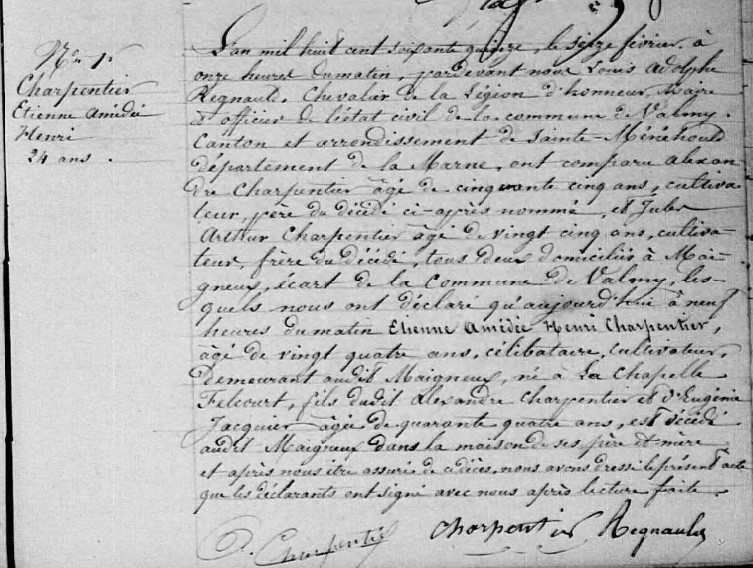 No 1
Charpentier
Etienne Amédée
Henri
24 ans.
L'an mil huit cent soixante quinze, le seize février, à
onze heures du matin, pardevant nous Louis Adolphe
Regnault, Chevalier de la Légion d'honneur, Maire
et officier de l'état civil de la commune de Valmy,
Canton et arrondissement de Sainte-Ménéhould
département de la Marne, ont comparu alexan
dre Charpentier âgé de cinquante cinq ans, cultiva
teur, père du décédé ci-après nommé, et Jules
Arthur Charpentier âgé de vingt cinq ans, cultiva-
teur, frère du décédé, tous deux domiciliés à Mai-
gneux, écart de la Commune de Valmy, les-
quels nous ont déclaré qu'aujourd'hui à neuf
heures du matin Etienne Amédée Henri Charpentier,
âgé de vingt quatre ans, célibataire, cultivateur,
demeurant audit Maigneux, né à La Chapelle
Felcourt, fils dudit Alexandre Charpentier et d'Eugénie
Jacquier âgée de quarante quatre ans, est décédé
audit Maigneux dans la maison de ses père et mère
et après nous être assuré de ce décès, nous avons dressé le présent acte
que les déclarants ont signé avec nous après lecture faite.
Charpentier Charpentier Regnault